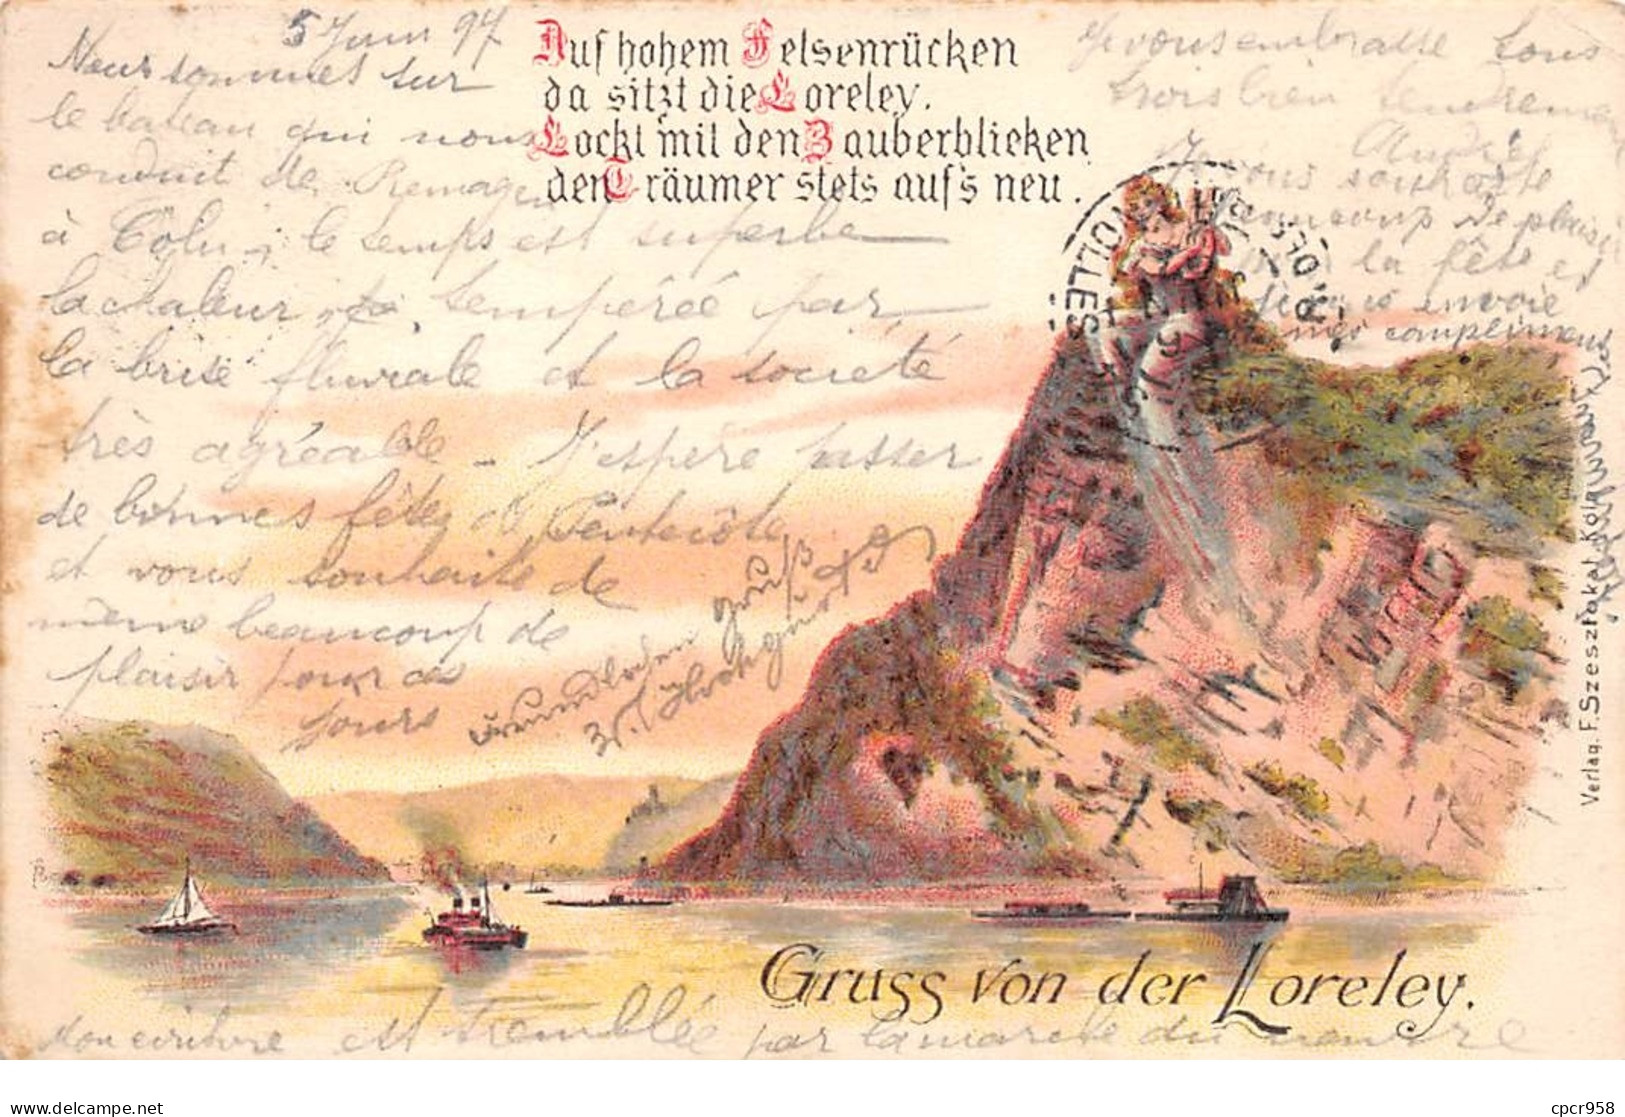 5 Juin 97
Nous sommes sur
le bateau qui nous
conduit de Remagen
à Cöln ; le temps est superbe
la chaleur tempérée par
la brise fluviale et la société
très agréable _ J'espère passer
de bonnes fêtes de Pentecôte
et vous souhaite de
même beaucoup de
plaisir pour ces
jours
Auf hohem Felsenrücken
da sitzt die Loreley.
Lockt mit den Zauberblicken
den Träumer stets auf's neu.
Je vous embrasse tous
trois bien tendrement
André
Je vous souhaite
beaucoup de plaisir
la fête et
je vous envoie
mes compliments
freundlichen Gruß
Gruss von der Loreley.
Mon écriture est tremblée par la marche du navire
Verlag. F. Szesztokat, Köln
cpcr958